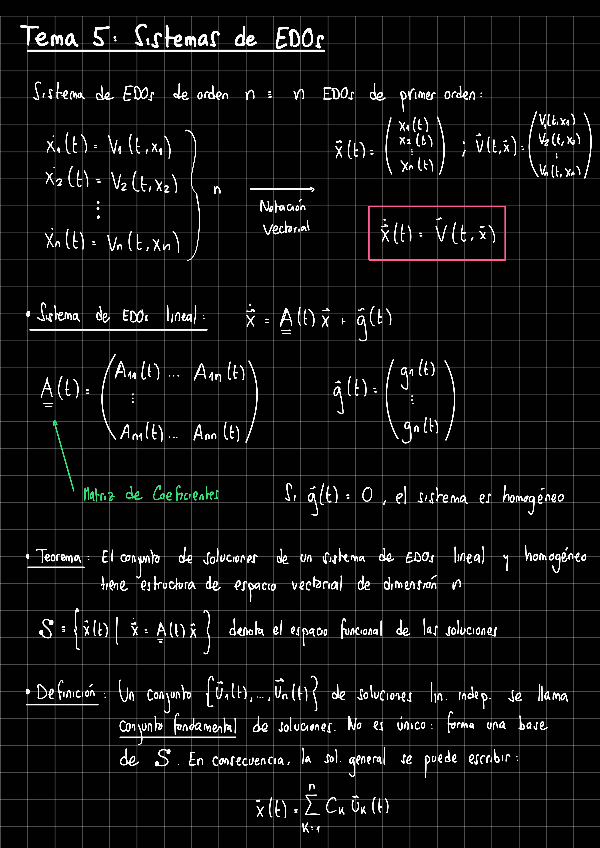 Tema 5: Sistemas de EDOs
Sistema de EDOs de orden n ≡ n EDOs de primer orden:
ẋ₁(t) = V₁(t,x₁)
ẋ₂(t) = V₂(t,x₂)
⋮
ẋₙ(t) = Vₙ(t,xₙ)
n
Notación
Vectorial
x⃗(t) = (x₁(t) x₂(t) ⋮ xₙ(t)) ; V⃗(t,x⃗) = (V₁(t,x₁) V₂(t,x₂) ⋮ Vₙ(t,xₙ))
ẋ⃗(t) = V⃗(t,x⃗)
• Sistema de EDOs lineal: ẋ⃗ = A(t) x⃗ + g⃗(t)
A(t) = (A₁₁(t) ... A₁ₙ(t) ⋮ Aₙ₁(t) ... Aₙₙ(t))
g⃗(t) = (g₁(t) ⋮ gₙ(t))
Matriz de Coeficientes
Si g⃗(t) = 0, el sistema es homogéneo
• Teorema: El conjunto de soluciones de un sistema de EDOs lineal y homogéneo
tiene estructura de espacio vectorial de dimensión n
S = {x⃗(t) | ẋ⃗ = A(t) x⃗} denota el espacio funcional de las soluciones
• Definición: Un conjunto {U⃗₁(t),...,U⃗ₙ(t)} de soluciones lin. indep. se llama
conjunto fundamental de soluciones. No es único: forma una base
de S. En consecuencia, la sol. general se puede escribir:
x⃗(t) = Σ_{K=1}^{n} C_K U⃗_K(t)